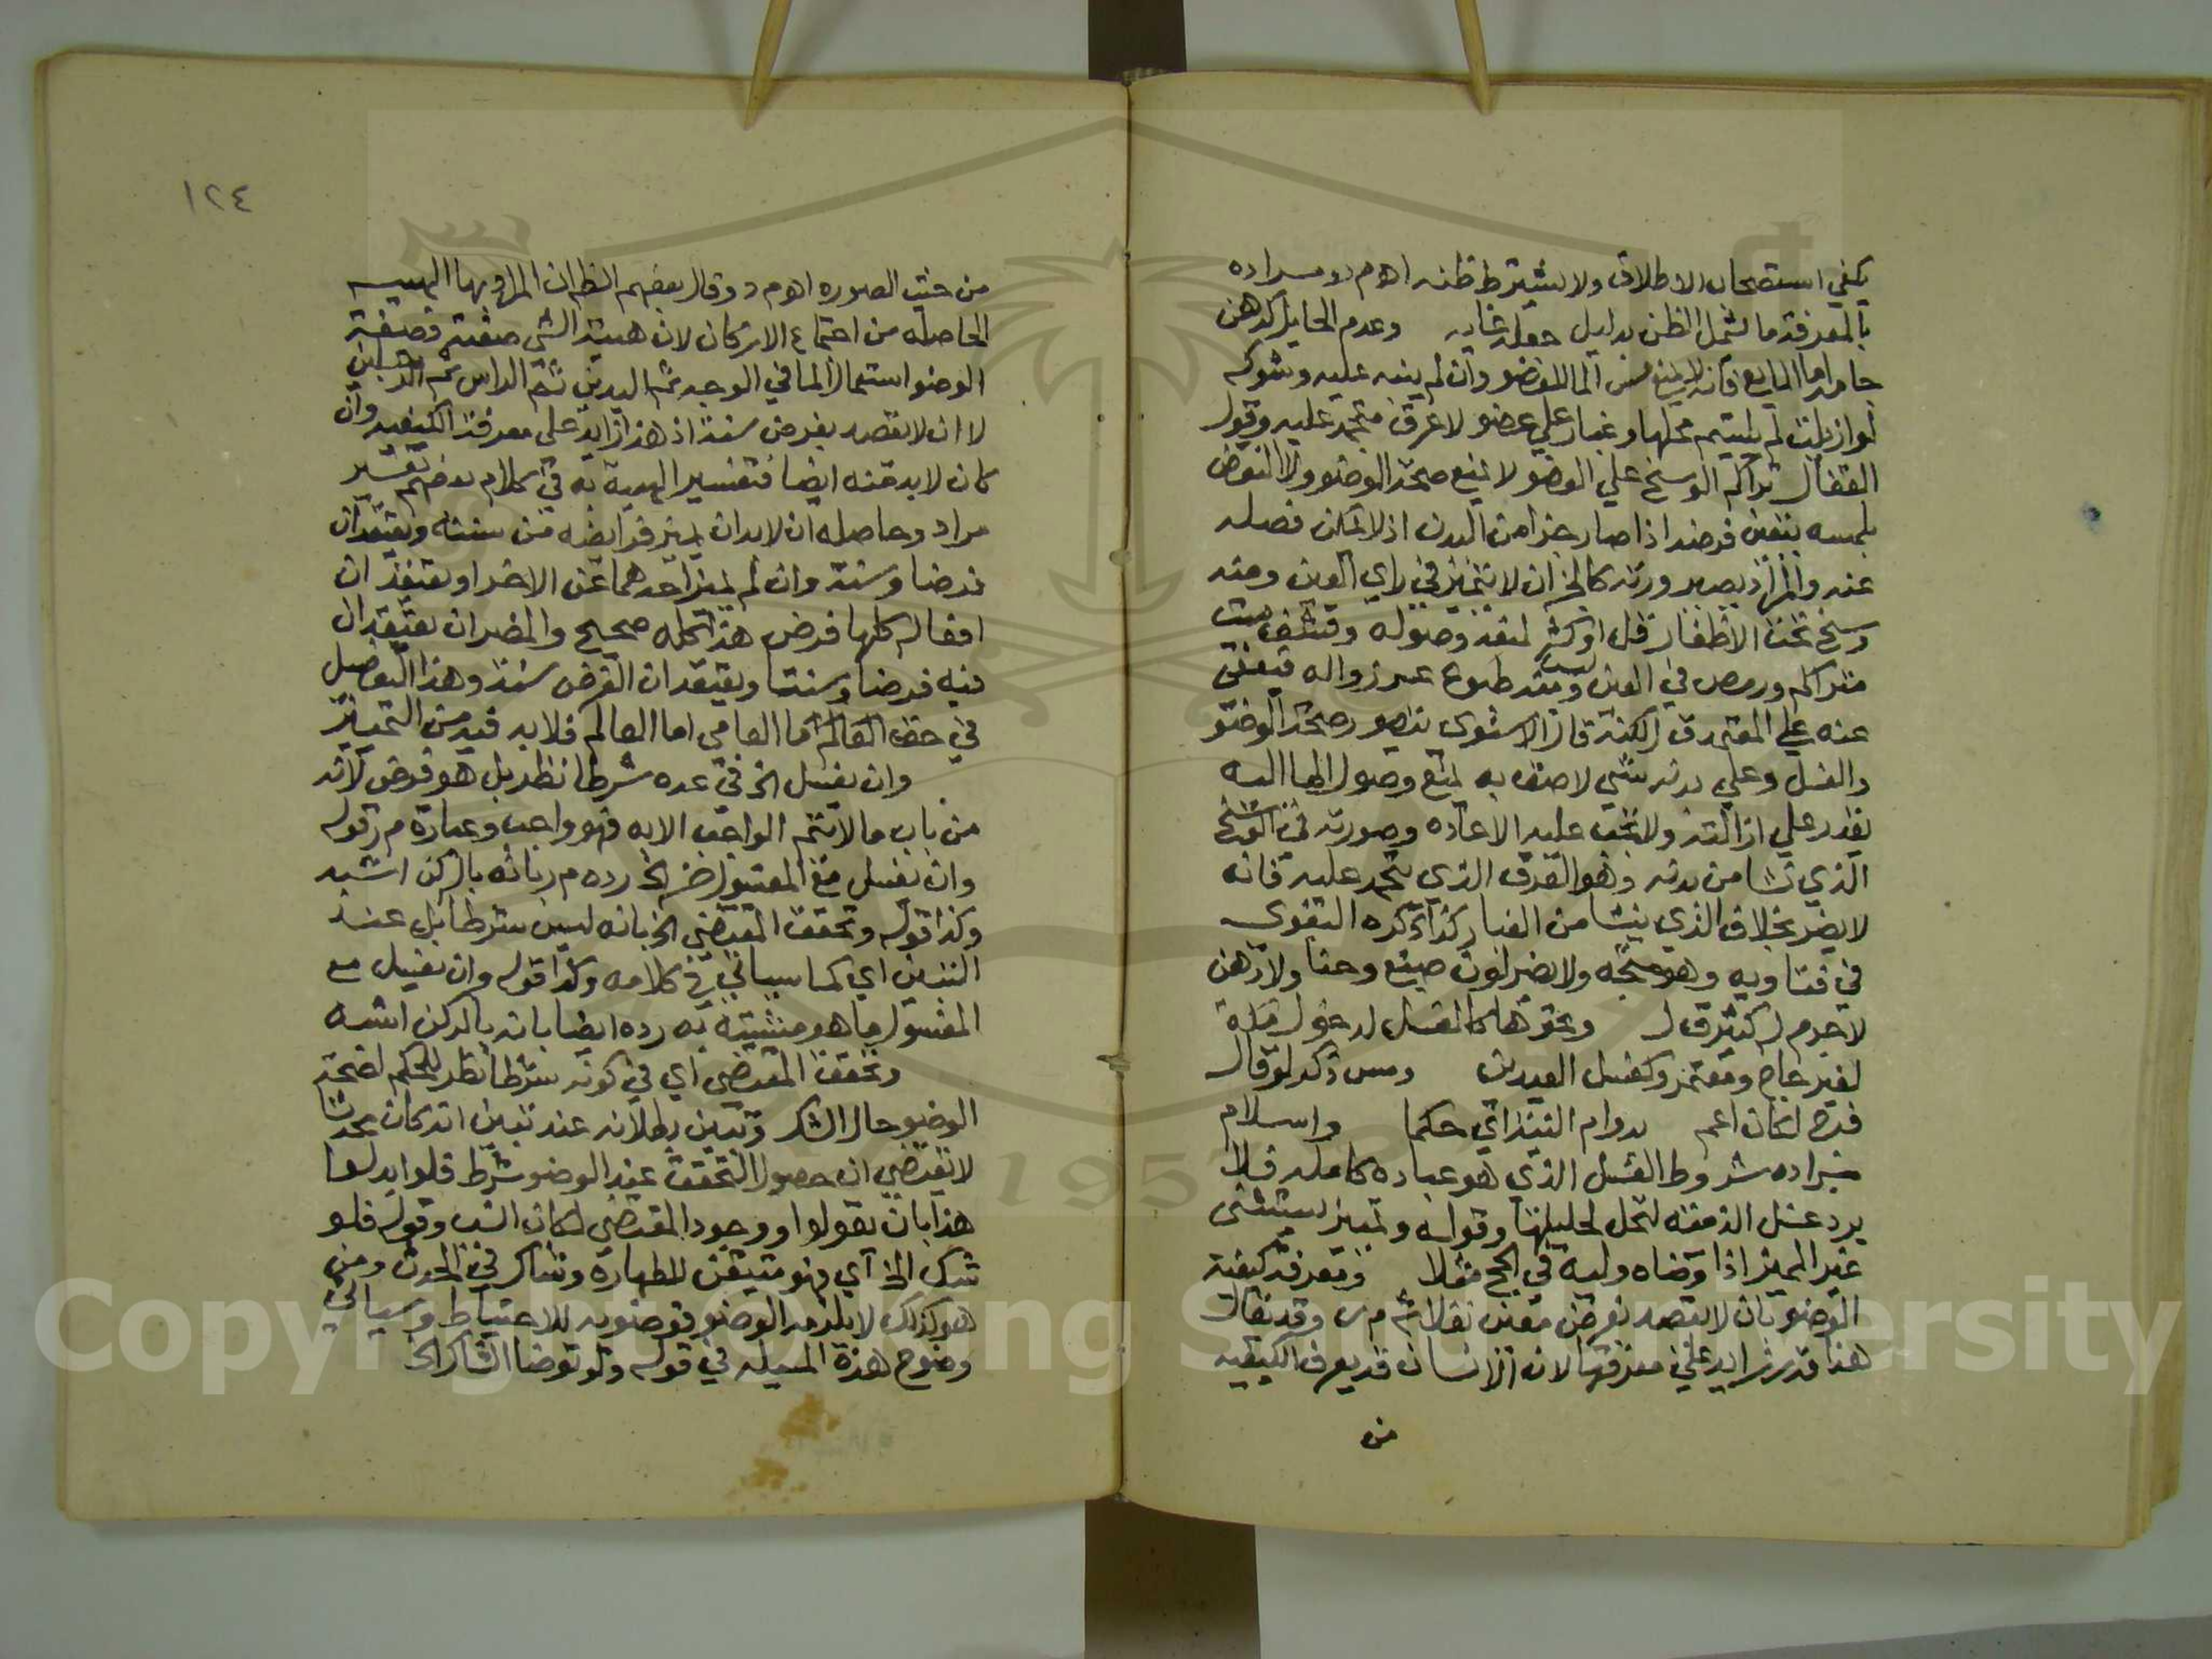 يكفي استصحاب الاطلاق ولا يشترط ظنه اهم ر مراده
بالمعرفة ما يشمل الظن بدليل جعله غايه وعدم الحايل كدهن
جامد اما المايع فانه لا يمنع مس الما للعضو وان لم يثبت عليه وشوكه
لو ازيلت لم يلتيم محلها وغبار علي عضو لا عرق متجمد عليه وقول
القفال تراكم الوسخ علي العضو لا يمنع صحة الوضو ولا النقض
بلمسه يتعين فرضه اذا صار جزا من البدن اذ لا يمكن فصله
عنه والمراد بصيرورته كالجزء ان لا يتميز في راي العين ومنه
وسخ تحت الاظفار قل او كثر لمنعه وصوله وقشف ميت
متراكم ورمص في العين وليس قشر طبوع عسر زواله فيعفى
عنه علي المعتمد ق ل لكنه قال الاسنوى يتصور صحة الوضو
والغسل وعلي بدنه شي لاصق به يمنع وصول الما اليه
يقدر علي ازالته ولا تجب عليه الاعاده وصورته في الوسخ
الذي نشا من بدنه وهو العرق الذي يتجمد عليه فانه
لا يضر بخلاف الذي ينشا من الغبار كذا ذكره البغوى
في فتاويه وهو متجه ولا يضر لون صبغ وحنا ولا دهن
لا جرم له كثير ق ل ونحوها كالغسل لدخول مكة
لغير حاج ومعتمر وكغسل العيدين ومس ذكر لو قال
فرج لكان اعم بدوام النية اي حكما واسلام
مراده شروط الغسل الذي هو عباده كامله فلا
يرد غسل الذميه لتحل لحليلها وقوله وتمييز يستثنى
غير المميز اذا وضاه وليه في الحج مثلا ومعرفة كيفية
الوضو بان لا يقصد بفرض معين نفلا شم م ر وقد يقال
هذا قدر زايد علي معرفتها لان الانسان قد يعرف الكيفيه
من
١٢٤
من حيث الصوره اهم د وقال بعضهم الظ ان المراد بها الهييه
الحاصله من اجتماع الاركان لان هيية الشي صفته وصفة
الوضو استعمال الما في الوجه ثم اليدين ثم الراس ثم الرجلين
لا ان لا يقصد بفرض سنة اذ هذا زايد علي معرفة الكيفيه وان
كان لا بد منه ايضا فتفسير الهيية به في كلام بعضهم تفسير
مراد وحاصله ان لا بد ان يميز فرايضه من سننه ويعتقد ان
فرضا وسنة وان لم يميز احدهما عن الاخر او يعتقد ان
افعاله كلها فرض هذا كله صحيح والمضر ان يعتقد ان
فيه فرضا وسنة ويعتقد ان الفرض سنة وهذا التفصيل
في حق العالم اما العامي اما العالم فلا بد فيه من التمييز
وان يغسل الخ في عده شرطا نظر بل هو فرض لانه
من باب ما لا يتم الواجب الا به فهو واجب وعبارة م ر قوله
وان يغسل مع المغسول جزا الخ رده م ر بانه بالركن اشبه
وكذا قوله وتحقق المقتضي الخ بانه ليس شرطا بل عند
التبين اي كما سياتي في كلامه وكذا قوله وان يغسل مع
المغسول ما هو مشتبه به رده ايضا بانه بالركن اشبه
وتحقق المقتضي اي في كونه شرطا نظر للحكم لصحة
الوضو حال الشك وتبين بطلانه عند تبين انه كان محدثا
لا يقتضي ان حصول التحقق عند الوضو شرط فلو ابدلها
هذا بان يقولوا ووجود المقتضي لكان انسب وقوله فلو
شك الخ اي وهو متيقن للطهارة وشاك في الحدث ومن
هو كذلك لا يلزمه الوضو فوضوه للاحتياط وسياتي
وضوح هذه المسيله في قوله ولو توضا الشاك الخ